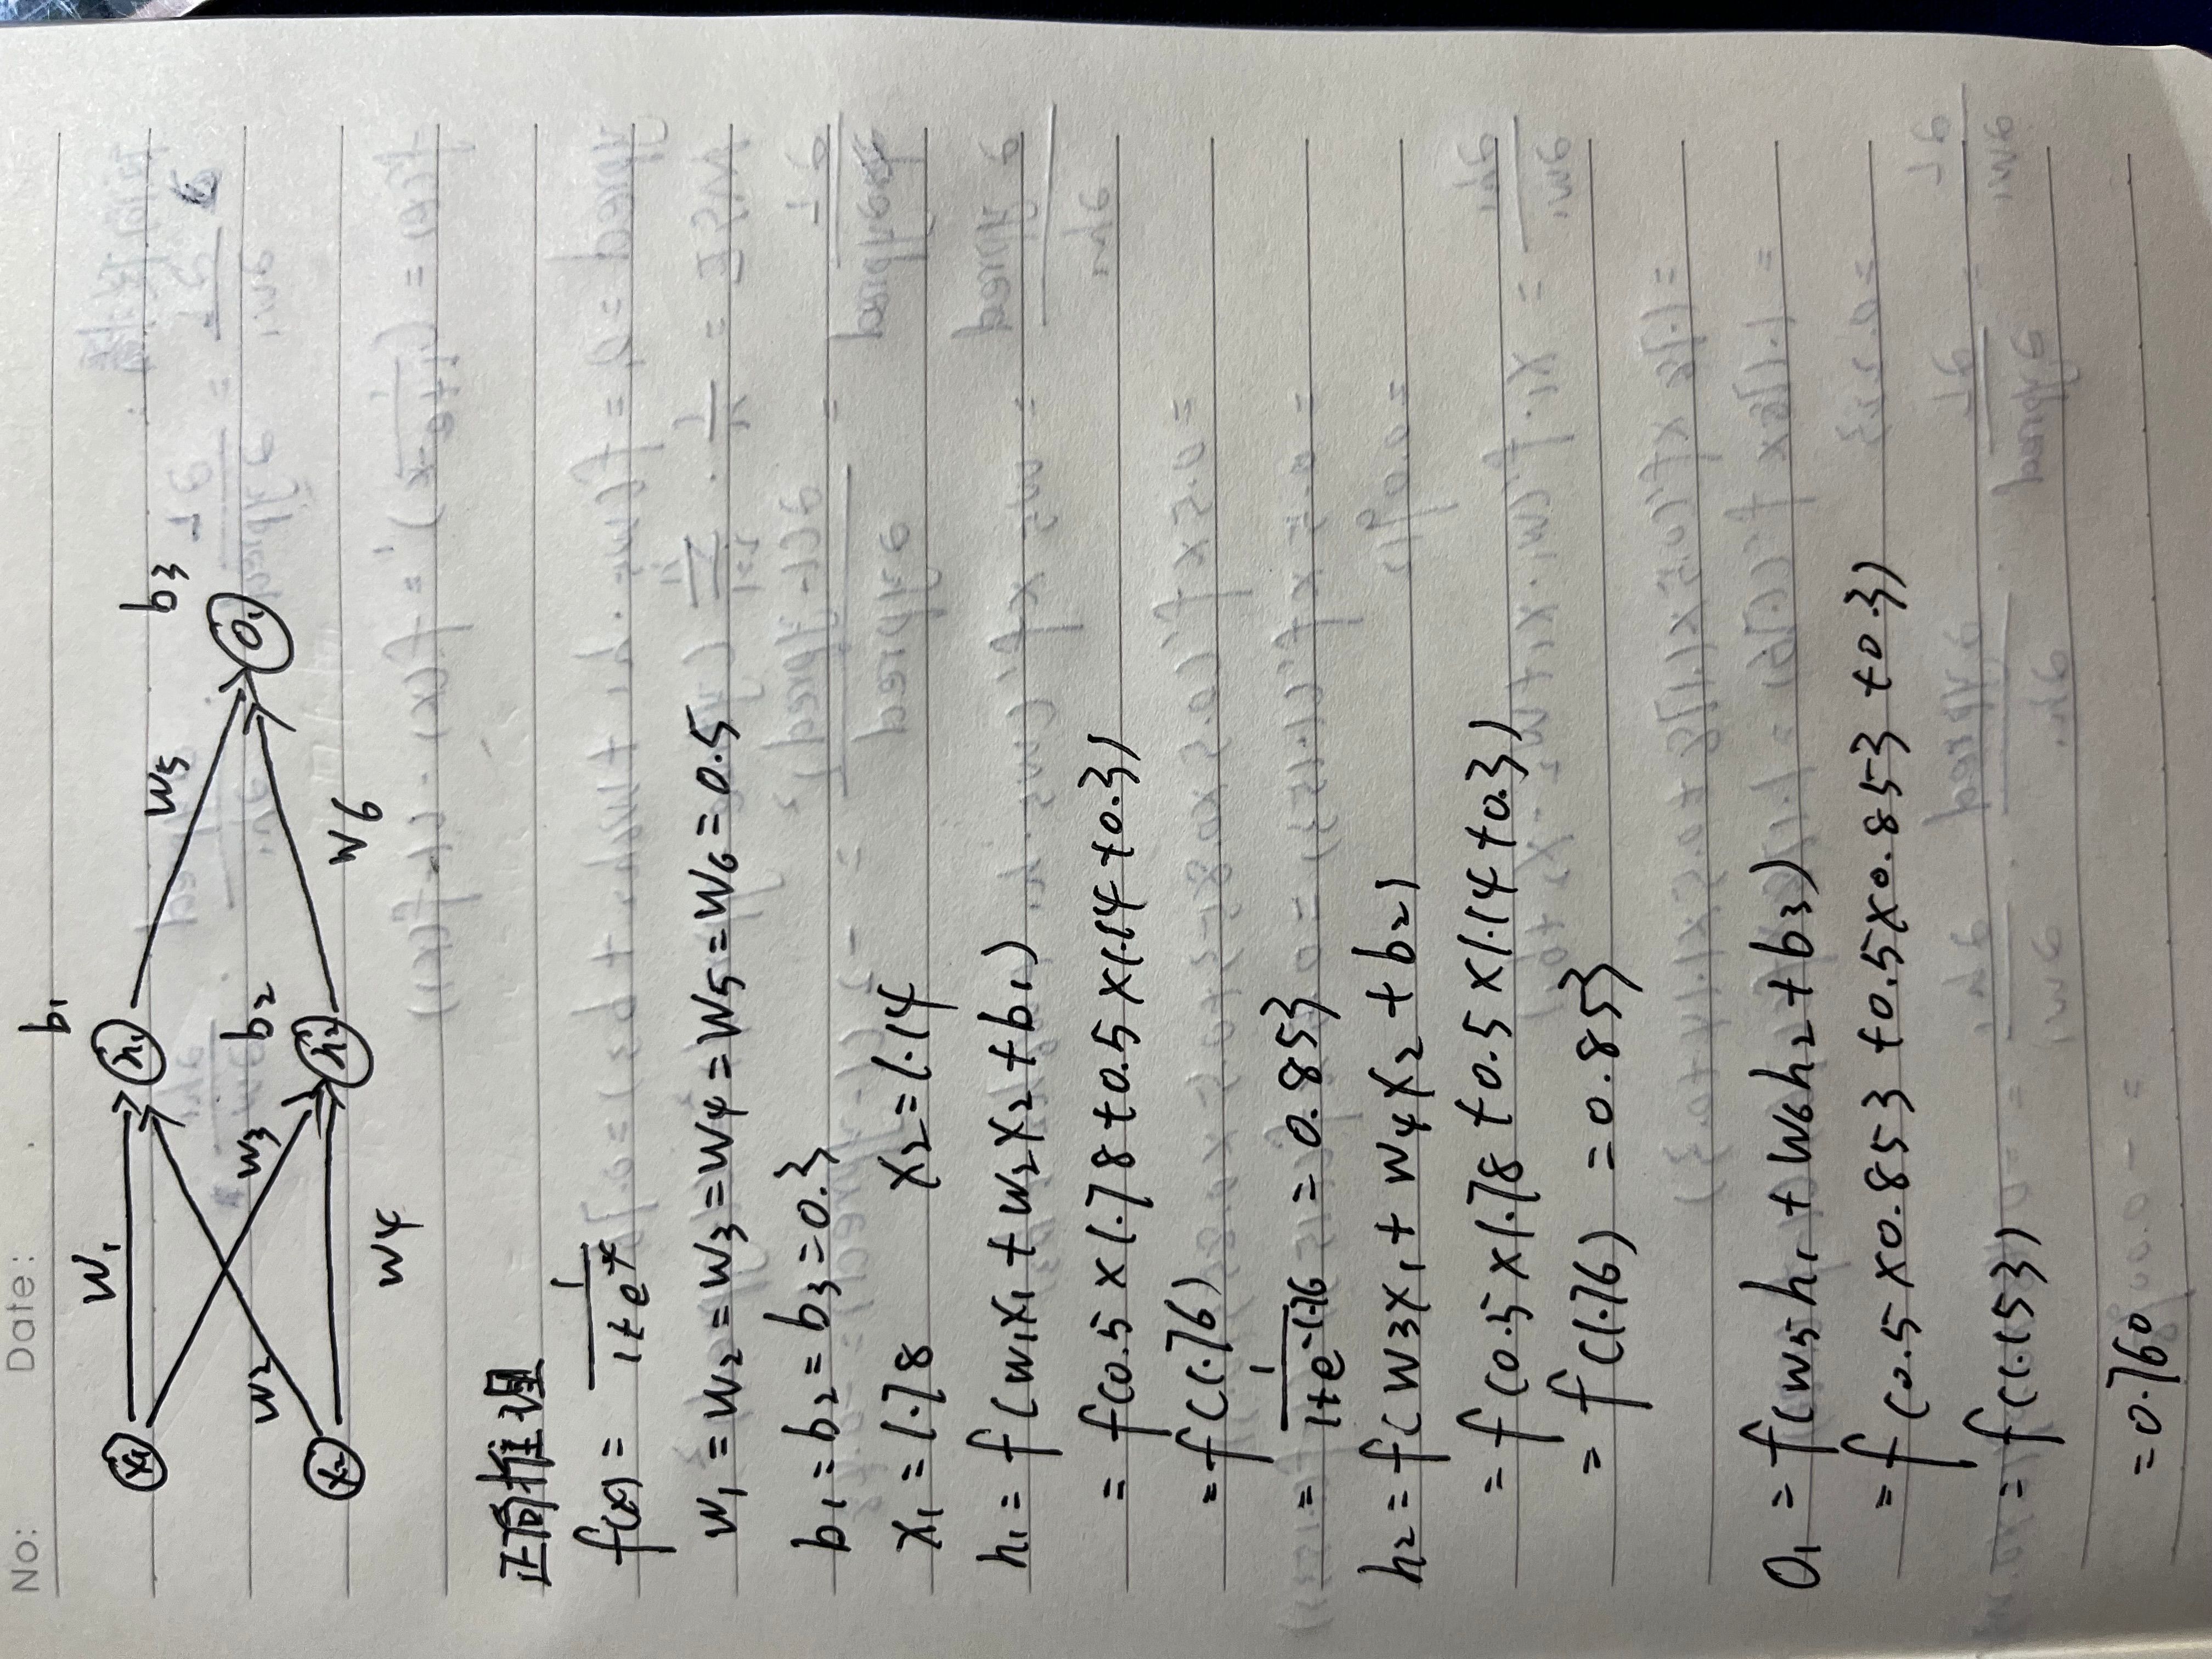 No: Date:
b₁
W₁
x₁
h₁
W₅
b₃
W₂
W₃
b₂
O₁
x₂
h₂
W₆
W₄
正向推理
f(x) = 1/(1+e^-x)
W₁=W₂=W₃=W₄=W₅=W₆=0.5
b₁=b₂=b₃=0.3
x₁=1.78 x₂=1.14
h₁=f(w₁x₁+w₂x₂+b₁)
=f(0.5×1.78+0.5×1.14+0.3)
=f(1.76)
=1/(1+e^-1.76)=0.853
h₂=f(w₃x₁+w₄x₂+b₂)
=f(0.5×1.78+0.5×1.14+0.3)
=f(1.76)=0.853
O₁=f(w₅h₁+w₆h₂+b₃)
=f(0.5×0.853+0.5×0.853+0.3)
=f(1.153)
=0.760